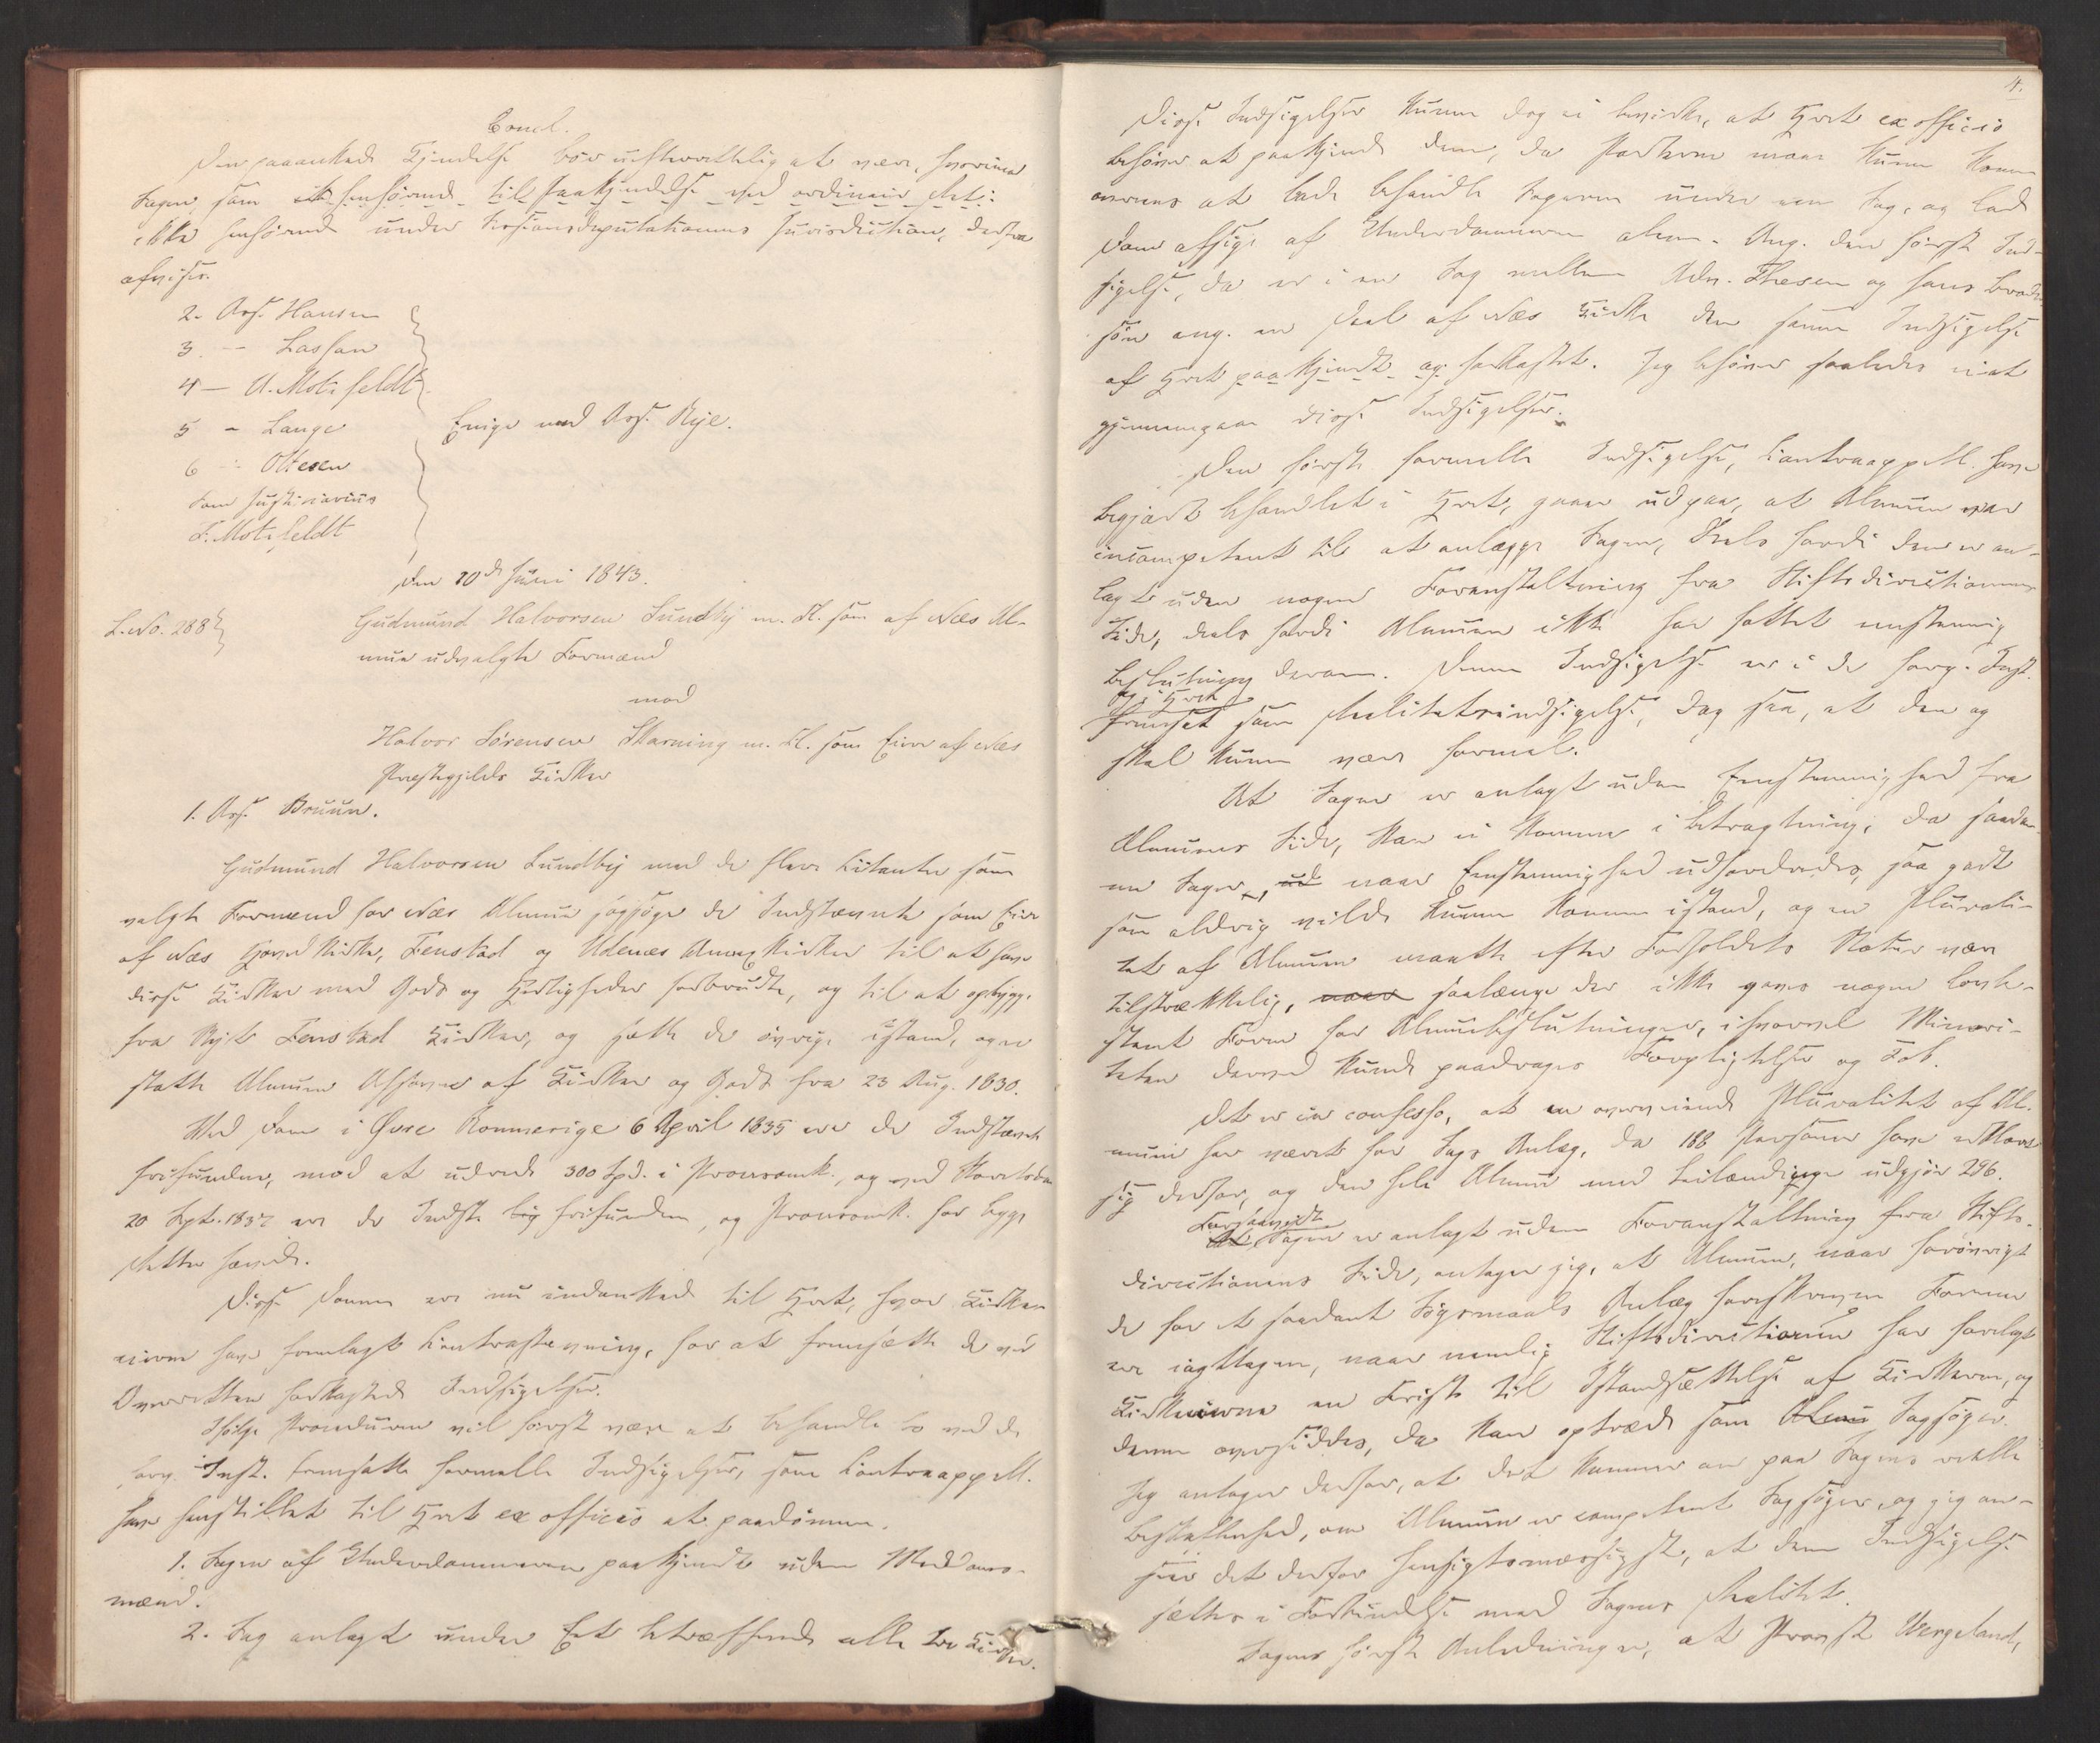 Concl.
Den paaankede Kjendelse bör uefterrettelig at være, hvorimod
Sagen, som ikke henhörende til Paakjendelse ved ordinair Ret i
ikke henhörende under Kirsionsdeputationens Jurisdiction, derfra
afvises.
2. Ass. Hansen
3. — Lasson
4 — U. Motzfeldt
5 - Lange
Enige med Ass. Rye.
6 - Ottesen
Som Justiciarius
K. Motzfeldt
Den 10de Juni 1843.
L. No. 288
Gudmund Halvorsen Sundby m. Fl. som af Næs Al-
mue udvalgte Formænd
mod
Halvor Sörensen Skarning m. Fl. som Eiere af Næs
Præstegjelds Kirker
1. Ass. Bruun.
Gudmund Halvorsen Sundby med de flere Citanter som
valgte Formænd for Næs Almue sagsöge de Indstævnte som Eiere
af Næs Hovedkirke, Fenstad og Udenæs Annexkirker til at have
disse Kirker med Gods og Herligheder forbrudt, og til at opbygge
fra Nyt Fenstad Kirke, og sætte de övrige istand, og er-
statte Almuen Afgivter af Kirker og Gods fra 23 Aug. 1830.
Ved Dom i Övre Romerige 6 April 1835 ere de Indstævnte
frifundne, mod at udrede 300 Spd. i Procesomk., og ved Overretsdom
20 Sept. 1837 ere de Indst. frifundne, og Procesomk. for begge
Retter hævede.
Disse Domme ere nu indankede til Hret, hvor Kirke-
eierne have fremlagt Contrastevning, for at fremsætte de ved
Overretten forkastede Indsigelser.
Ifölge Proceduren vil först være at behandle to ved de
foreg. Inst. fremsatte formelle Indsigelser, som Contraappell.
have henstillet til Hret ex officio at paadömme.
1. Sagen af Underdommeren paakjendt uden Meddoms-
mænd.
2. Sag anlagt under Et betræffende alle tre Kirker.
4.
Disse Indsigelser kunne dog ei bevirke, at Hret ex officio
behöver at paakjende dem, da Parterne maae kunne komme
overens at lade behandle Sagerne under een Sag, og lade
Dom afsige af Underdommeren alene. Ang. den förste Ind-
sigelse, da er i en Sag mellem Adv. Thesen og hans Broder-
sön ang. en Deel af Næs Kirke den samme Indsigelse
af Hret paakjendt og forkastet. Jeg behöver saaledes ei at
gjennemgaae disse Indsigelser.
Den förste formelle Indsigelse, Contraappell. have
begjert behandlet i Hret, gaaer ud paa, at Almuen var
incompetent til at anlægge Sagen, deels fordi den er an-
lagt uden nogen Foranstaltning fra Stiftsdirectionens
Side, deels fordi Almuen ikke har fattet eenstemmig
Beslutning derom. Denne Indsigelse er i de foreg. Inst.
og i Hret
fremsat som Realitetsindsigelse, dog saa, at den og
skal kunne være formel.
At Sagen er anlagt uden Eenstemmighed fra
Almuens Side, kan ei komme i Betragtning, da saadan-
ne Sager, naar Eenstemmighed udfordredes, saa godt
som aldrig vilde kunne komme istand, og en Plurali-
tet af Almuen maatte efter Forholdets Natur være
tilstrækkelig, saalænge der ikke gaves nogen lovbe-
stemt Form for Almuebeslutninger, ihvorvel Minori-
teten derved kunde paadrages Forpligtelse og Tab.
Det er in confesso, at en overveiende Pluralitet af Al-
muen har været for Sags Anlæg, da 188 Personer have erklæret
sig derfor, og den hele Almue med Leilændinge udgjör 296.
Forsaavidt
Sagen er anlagt uden Foranstaltning fra Stifts-
directionens Side, antager jeg, at Almuen, naar forövrigt
de for et saadant Sögsmaals Anlæg foreskrevne Former
ere iagttagne, naar nemlig Stiftsdirectionen har forelagt
Kirkeeierne en Frist til Istandsættelse af Kirkerne, og
denne oversiddes, da kan optræde som Sagsöger.
Jeg antager derfor, at det kommer an paa Sagens reelle
Beskaffenhed, om Almuen er competent Sagsöger, og jeg an-
seer det derfor hensigtsmæssigst, at denne Indsigelse
sættes i Forbindelse med Sagens Realitet.
Sagens förste Anledning er, at Provst Wergeland,